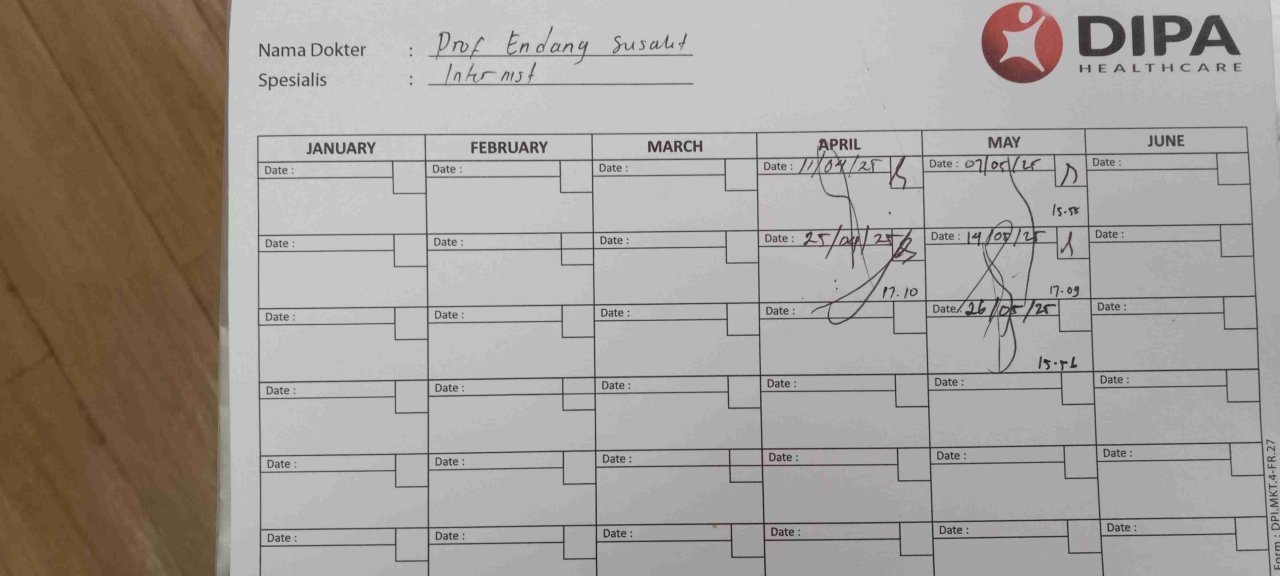 DIPA
HEALTHCARE
Nama Dokter : Prof Endang Susalit
Spesialis : Internist
JANUARY FEBRUARY MARCH APRIL MAY JUNE
Date : Date : Date : Date : 11/04/25 Date : 07/05/25 Date :
15.58
Date : Date : Date : Date : 25/04/25 Date : 14/05/25 Date :
17.10 17.09
Date : Date : Date : Date : Date : 26/05/25 Date :
15.56
Date : Date : Date : Date : Date : Date :
Date : Date : Date : Date : Date : Date :
Date : Date : Date : Date : Date : Date :
Form : DPI.MKT.4-FR.27